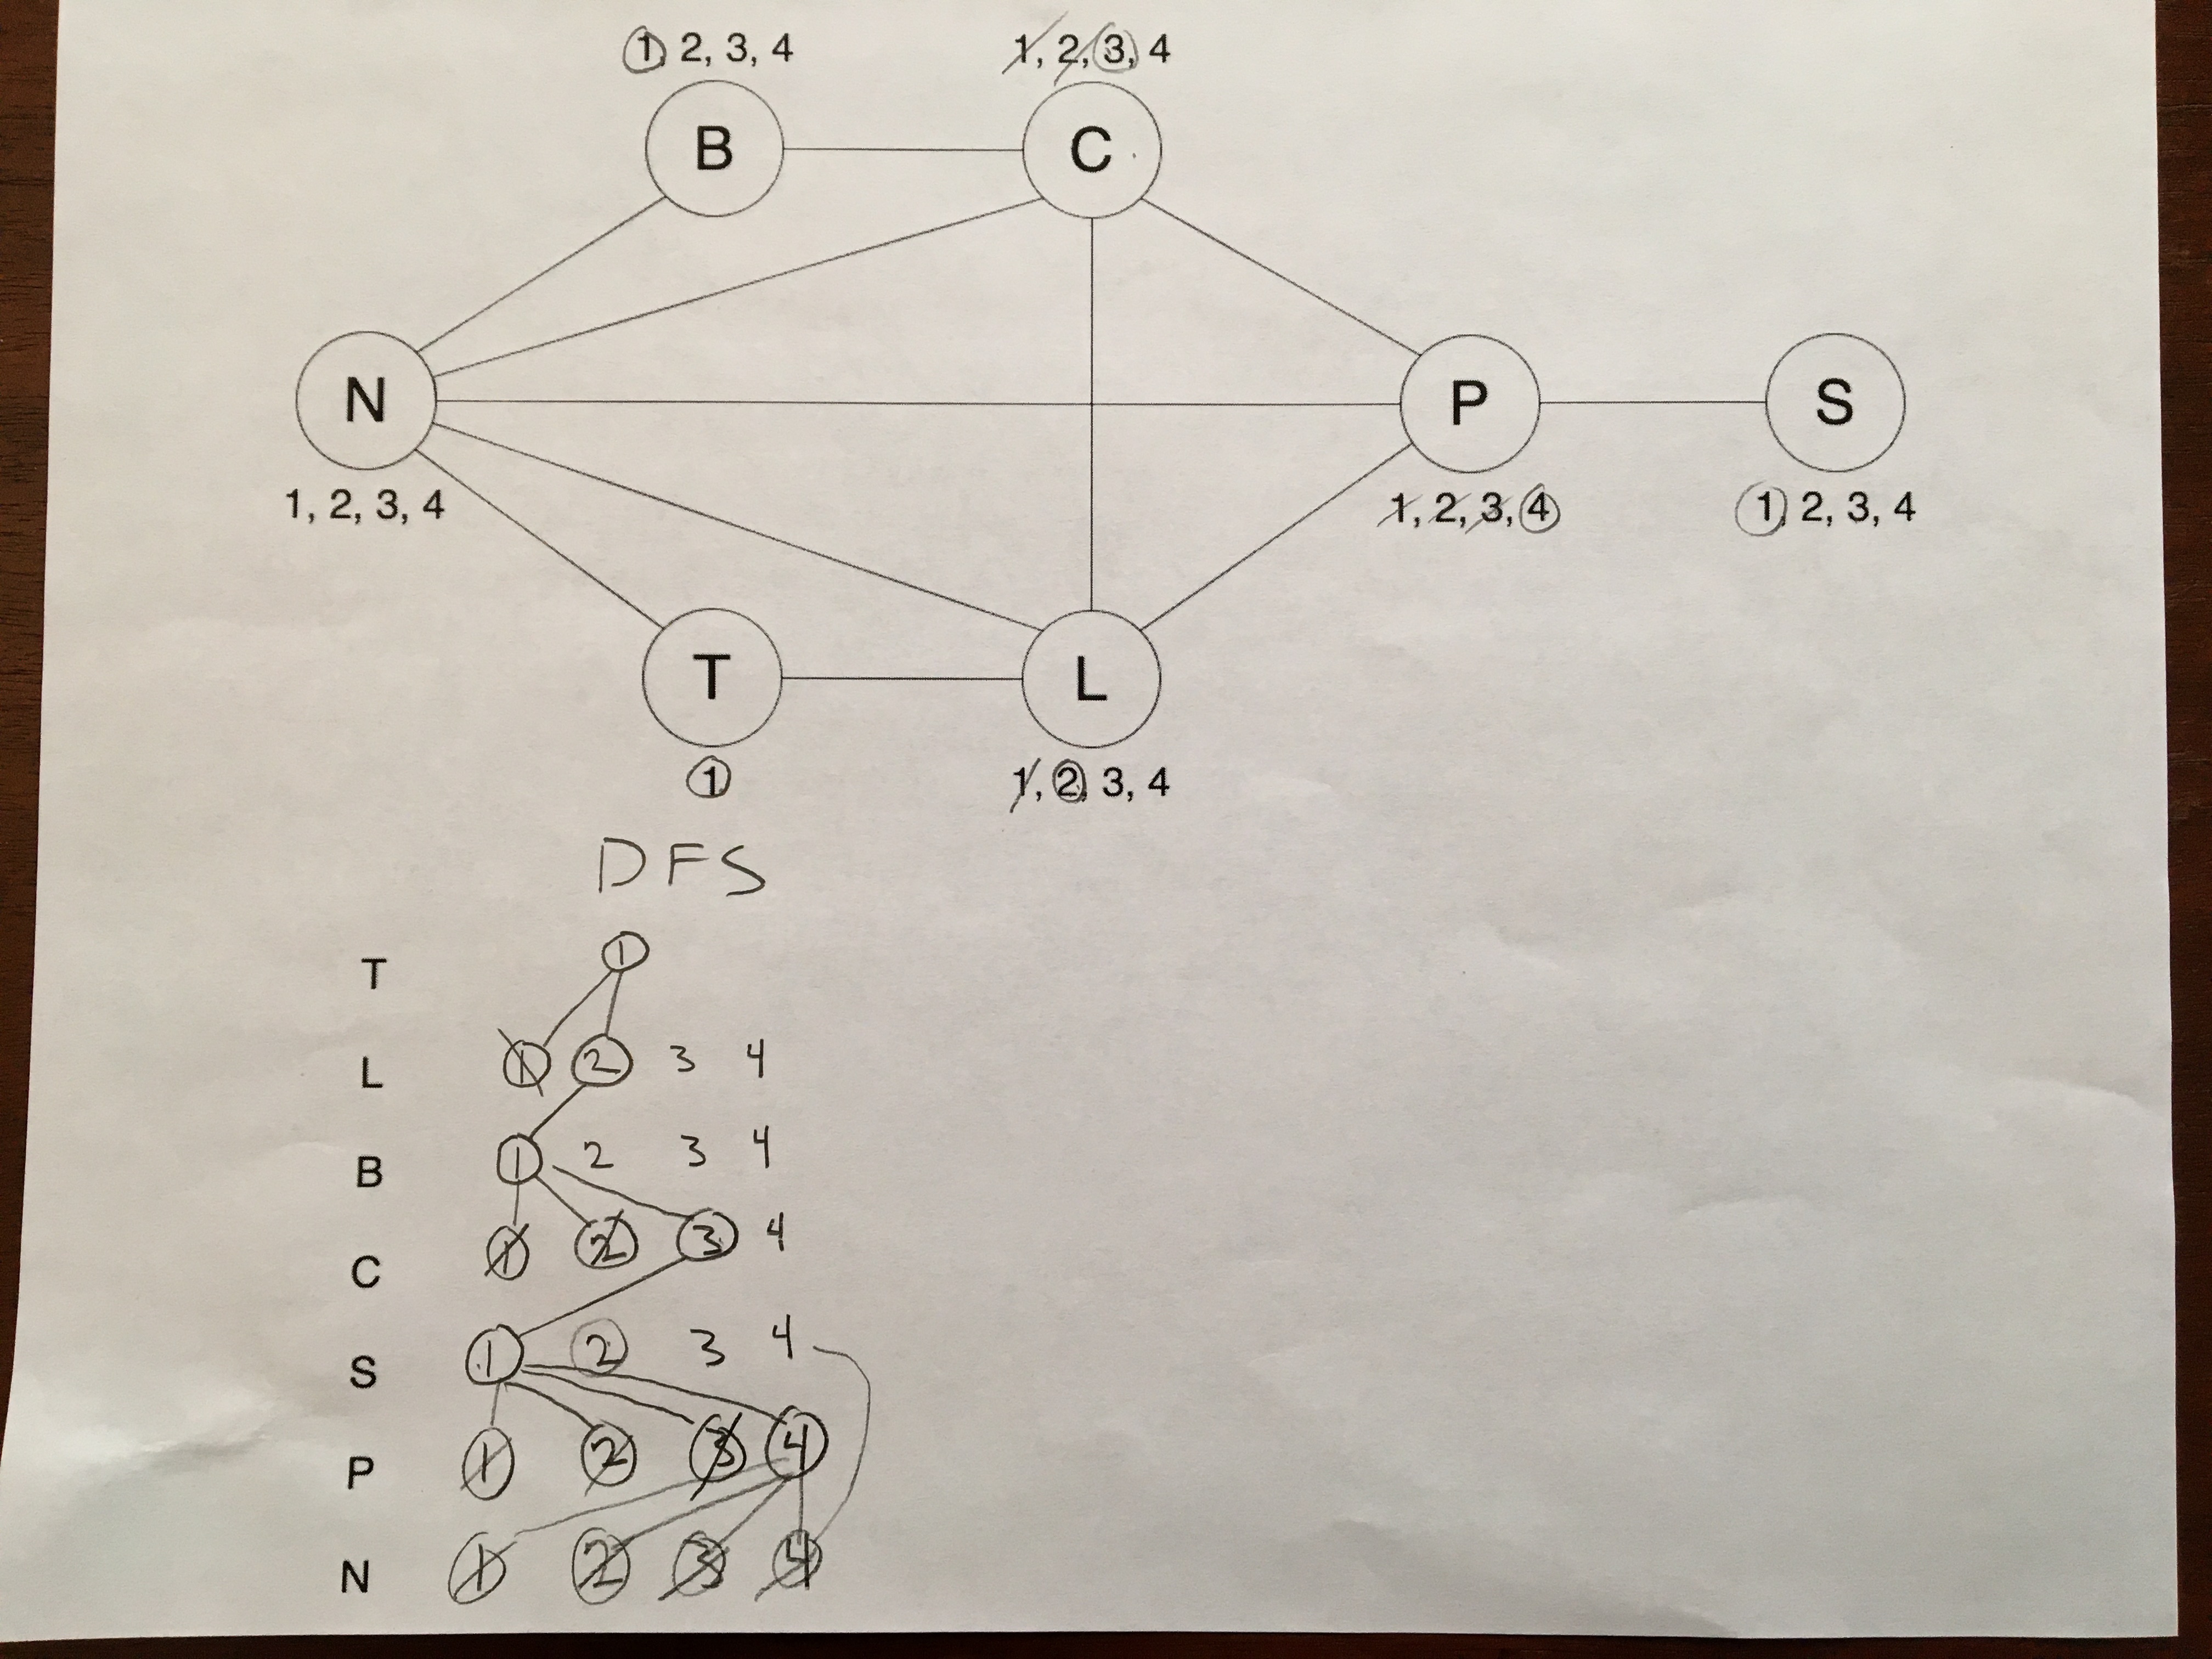 1, 2, 3, 4
1, 2, 3, 4
B
C
N
P
S
1, 2, 3, 4
1, 2, 3, 4
1, 2, 3, 4
T
L
1
1, 2, 3, 4
DFS
T 1
L 1 2 3 4
B 1 2 3 4
C 1 2 3 4
S 1 2 3 4
P 1 2 3 4
N 1 2 3 4